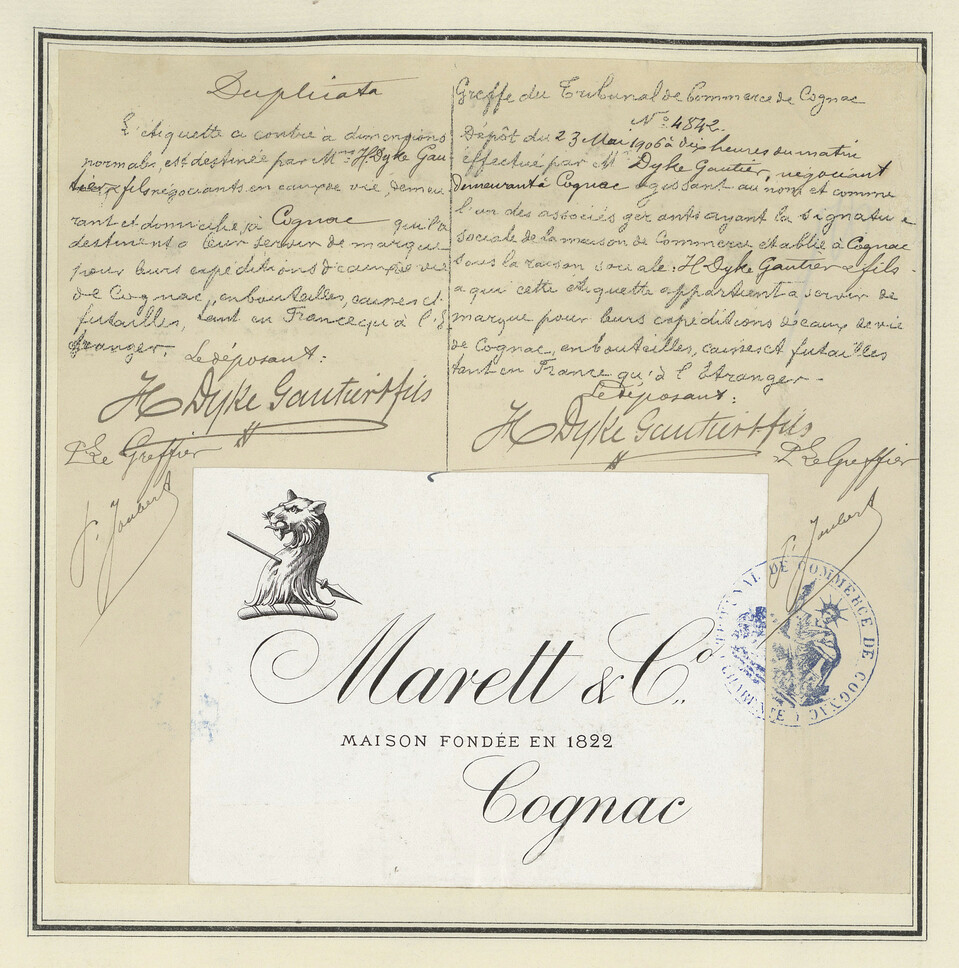 Duplicata
L'étiquette ci contre à dimensions
normales, est destinée par Mrs H. Dyke Gau
tier & fils négociants en eaux de vie, demeu
rant et domiciliés à Cognac qui la
destinent à leur servir de marque
pour leurs expéditions d'eaux de vie
de Cognac, en bouteilles, caisses et
futailles, tant en France qu'à l'É
tranger.
Le déposant:
H Dyke Gautier & fils
Pr Le Greffier
Joubert
Greffe du Tribunal de Commerce de Cognac
No 4842.
Dépôt du 23 Mai 1906 à dix heures du matin
effectué par Mr Dyke Gautier, négociant
demeurant à Cognac agissant au nom et comme
l'un des associés gérants ayant la signature
sociale de la maison de Commerce établie à Cognac
sous la raison sociale: H Dyke Gautier & fils
à qui cette étiquette appartient à servir de
marque pour leurs expéditions d'eaux de vie
de Cognac, en bouteilles, caisses et futailles
tant en France qu'à l'Étranger.
Le déposant:
H Dyke Gautier & fils
Pr Le Greffier
Joubert
TRIBUNAL DE COMMERCE DE COGNAC
CHARENTE
Marett & Co.
MAISON FONDÉE EN 1822
Cognac